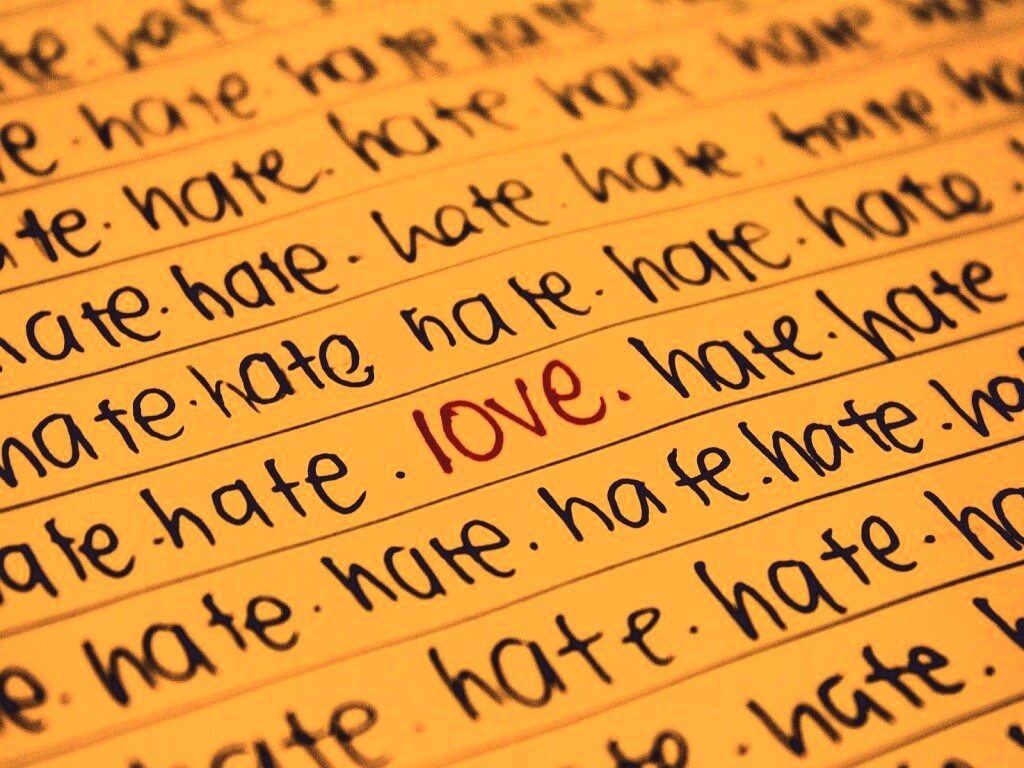 te. hate hate
e. hate. hate hate hate
ate. hate. hate hate hate hate
hate. hate. hate. hate. hate. ha
hate. hate hate. hate. hate.
ate. hate. love. hate. hate
e. hate. hate. hate. hate. ha
ate. hate. hate. ha
te. hate. h